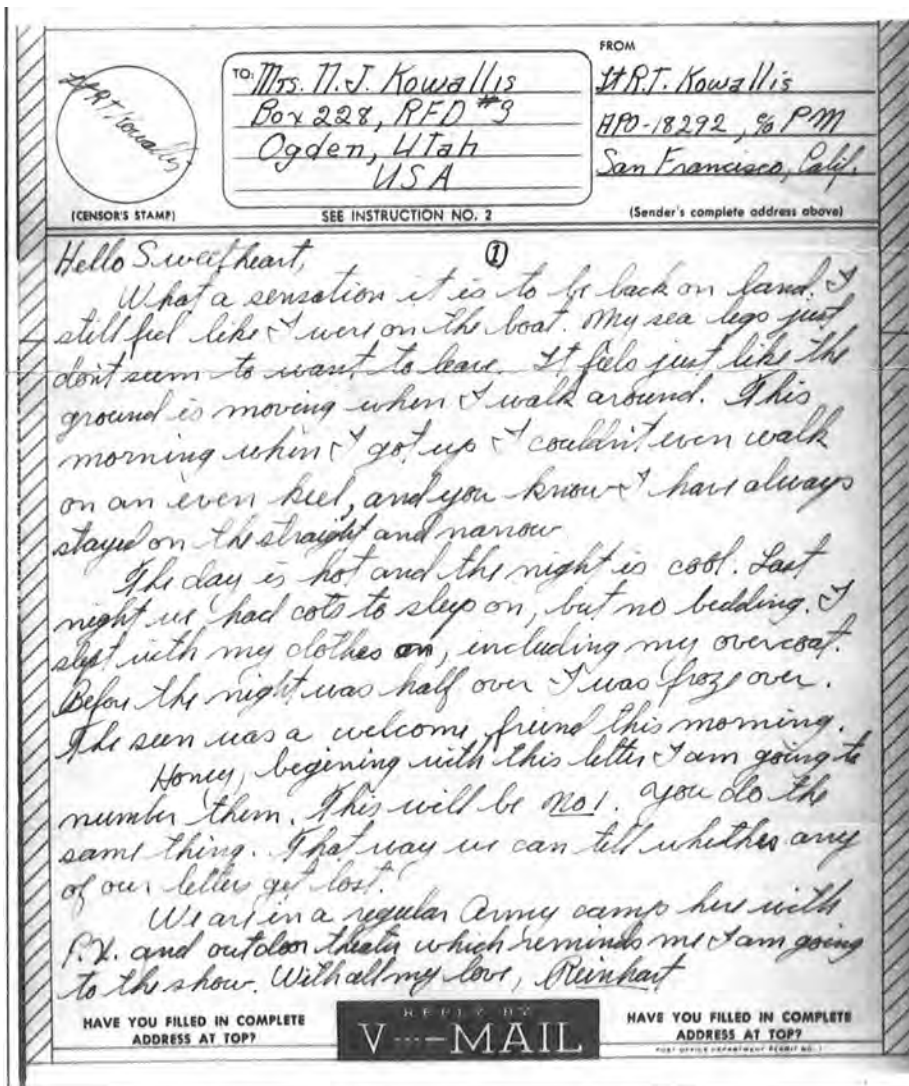 FROM
TO: Mrs. N. J. Kowallis
Lt R.T. Kowallis
Lt R.T. Kowallis
Box 228, RFD #3
APO-18292, c/o PM
Ogden, Utah
San Francisco, Calif.
USA
(CENSOR'S STAMP)
SEE INSTRUCTION NO. 2
(Sender's complete address above)
Hello Sweetheart, ①
What a sensation it is to be back on land. I
still feel like I were on the boat. My sea legs just
don't seem to want to leave. It feels just like the
ground is moving when I walk around. This
morning when I got up I couldn't even walk
on an even keel, and you know I have always
stayed on the straight and narrow
The day is hot and the night is cool. Last
night we had cots to sleep on, but no bedding. I
slept with my clothes on, including my overcoat.
Before the night was half over I was froze over.
The sun was a welcome friend this morning.
Honey, begining with this letter I am going to
number them. This will be no 1. You do the
same thing. That way we can tell whether any
of our letters get lost.
We are in a regular Army camp here with
P.X. and outdoor theater which reminds me I am going
to the show. With all my love, Reinhart
HAVE YOU FILLED IN COMPLETE
ADDRESS AT TOP?
REPLY BY
V···—MAIL
HAVE YOU FILLED IN COMPLETE
ADDRESS AT TOP?
POST OFFICE DEPARTMENT PERMIT NO. 1